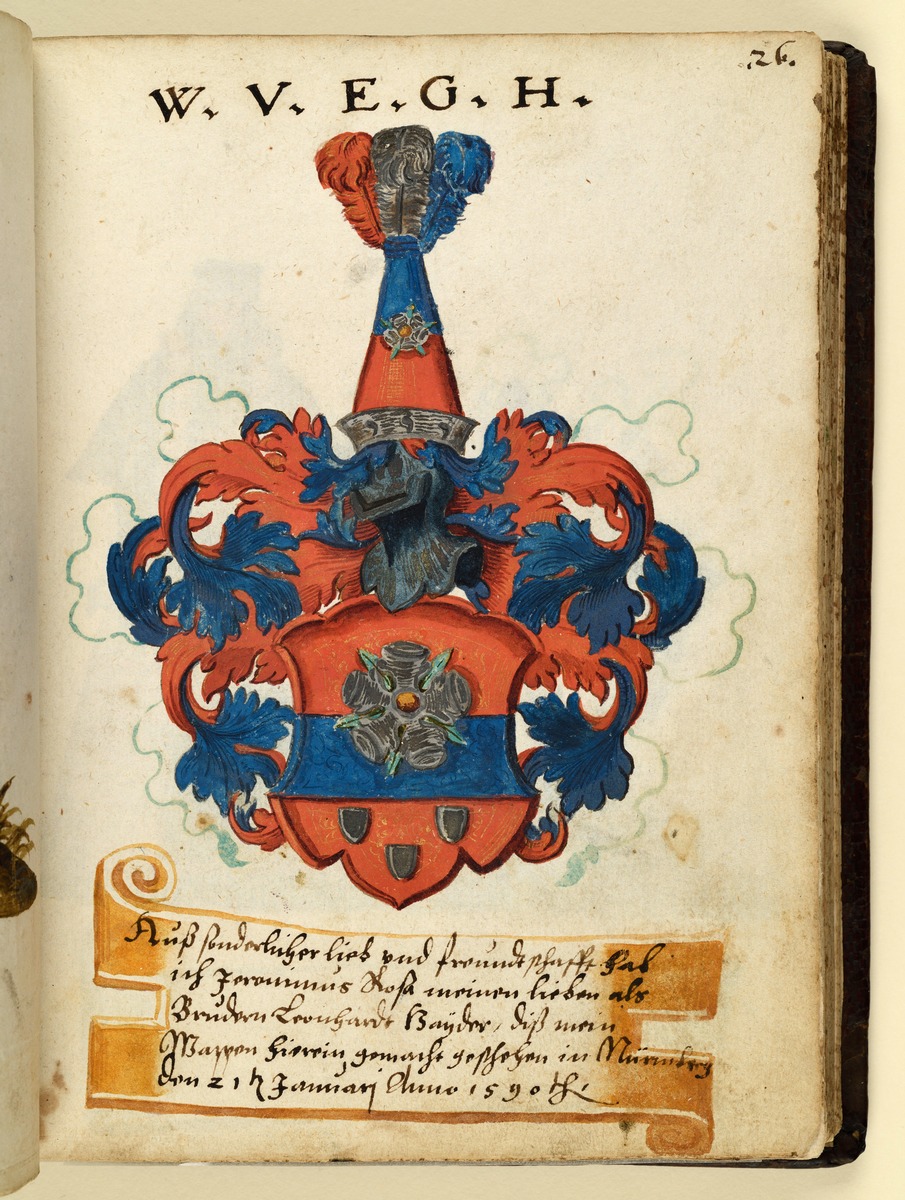 26.
W. V. E. G. H.
Auß sonderlicher lieb vnd freundtschafft hab
ich Jeronimus Rosa meinen lieben als
Brudern Leonhardt diß mein
Wappen hierein gemacht geschehen in Nürmberg
den 21 Januarj Anno 1590